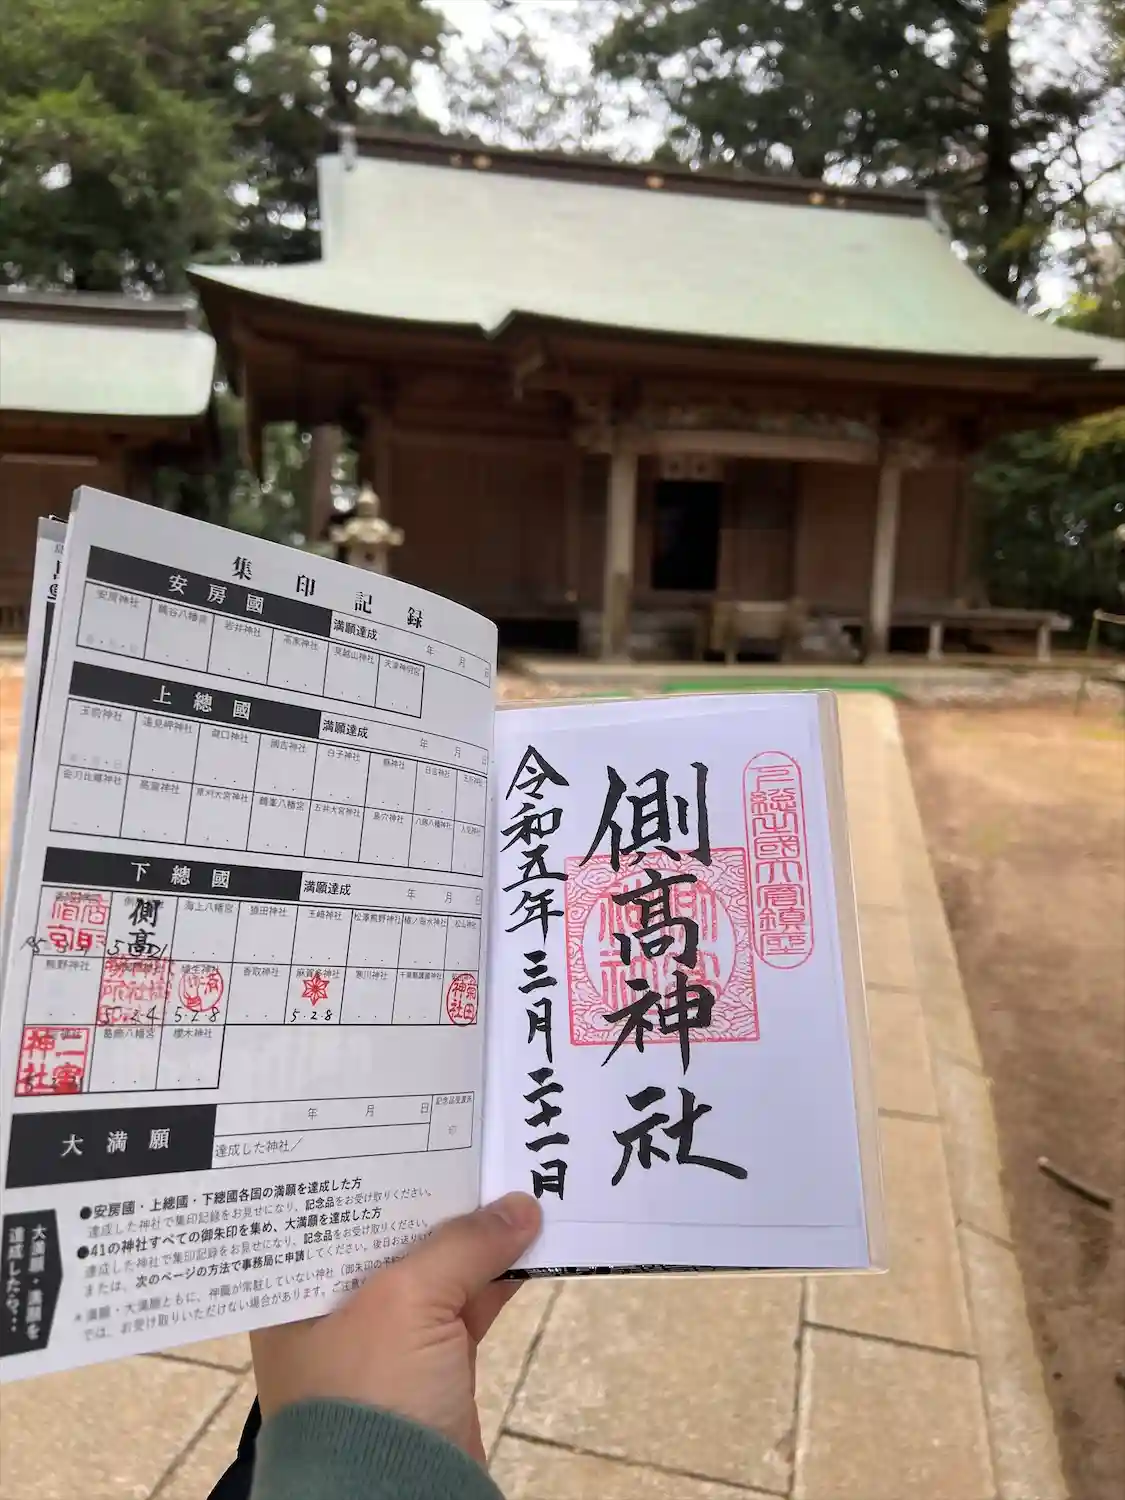 集印記録
安房國
満願達成
年 月 日
安房神社
鶴谷八幡宮
岩井神社
高家神社
莫越山神社
天津神明宮
上總國
満願達成
年 月 日
玉前神社
遠見岬神社
瀧口神社
國吉神社
白子神社
橘神社
日吉神社
高瀧神社
草刈大宮神社
鶴峯八幡宮
五井大宮神社
島穴神社
八剱八幡神社
人見神社
下總國
満願達成
年 月 日
側高
海上八幡宮
猿田神社
玉﨑神社
松澤熊野神社
松山神社
熊野神社
埴生神社
香取神社
麻賀多神社
寒川神社
千葉縣護國神社
5・2・4
5・2・8
5・2・8
二宮神社
葛飾八幡宮
櫻木神社
大満願
年 月 日
記念品受渡済
印
達成した神社／
大満願・満願を達成したら…
●安房國・上總國・下總國各国の満願を達成した方
達成した神社で集印記録をお見せになり、記念品をお受け取りください。
●41の神社すべての御朱印を集め、大満願を達成した方
達成した神社で集印記録をお見せになり、記念品をお受け取りください。
または、次のページの方法で事務局に申請してください。後日お送りい
＊満願・大満願ともに、神職が常駐していない神社（御朱印の予
では、お受け取りいただけない場合があります。ご注意
下総國大倉鎮座
側高神社
令和五年三月二十一日